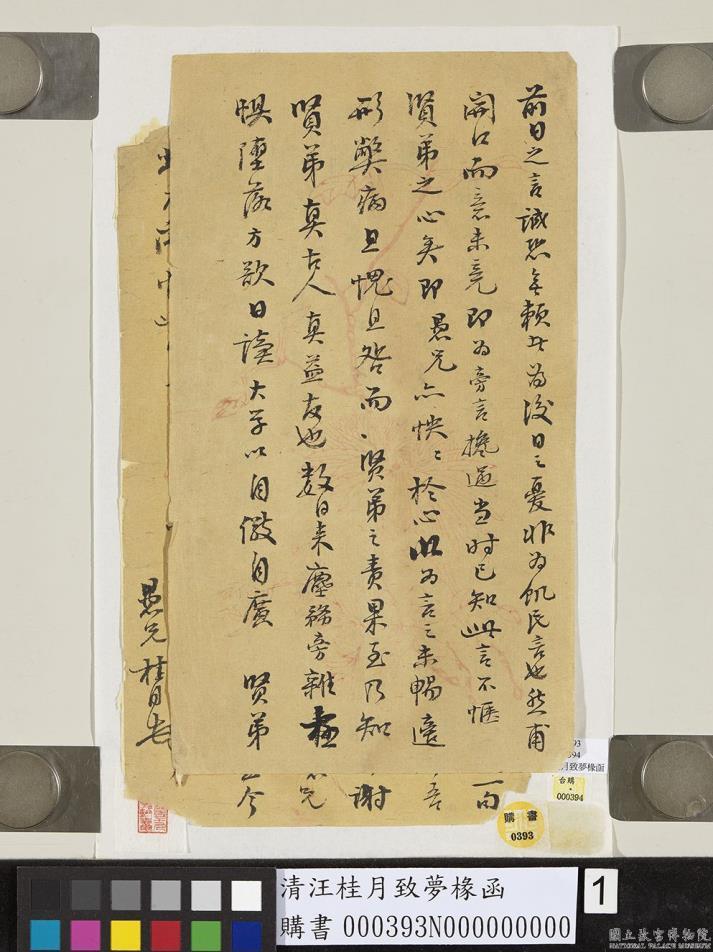 前日之言誠恐無賴者為後日之憂非為飢民言也然甫
開口而意未竟即為旁言攙過當時已知此言不愜
賢弟之心矣即愚兄亦怏怏於心此為言之未暢適
形弊病且愧且咎而賢弟之責果至乃知
賢弟真古人真益友也數日來塵務旁雜
惧墮落方欲日讀大學以自儆自廣 賢弟
愚兄桂月
購書
0393
台購
000394
月致夢椽函
清汪桂月致夢椽函
購書 000393N000000000
1
國立故宮博物院
NATIONAL PALACE MUSEUM